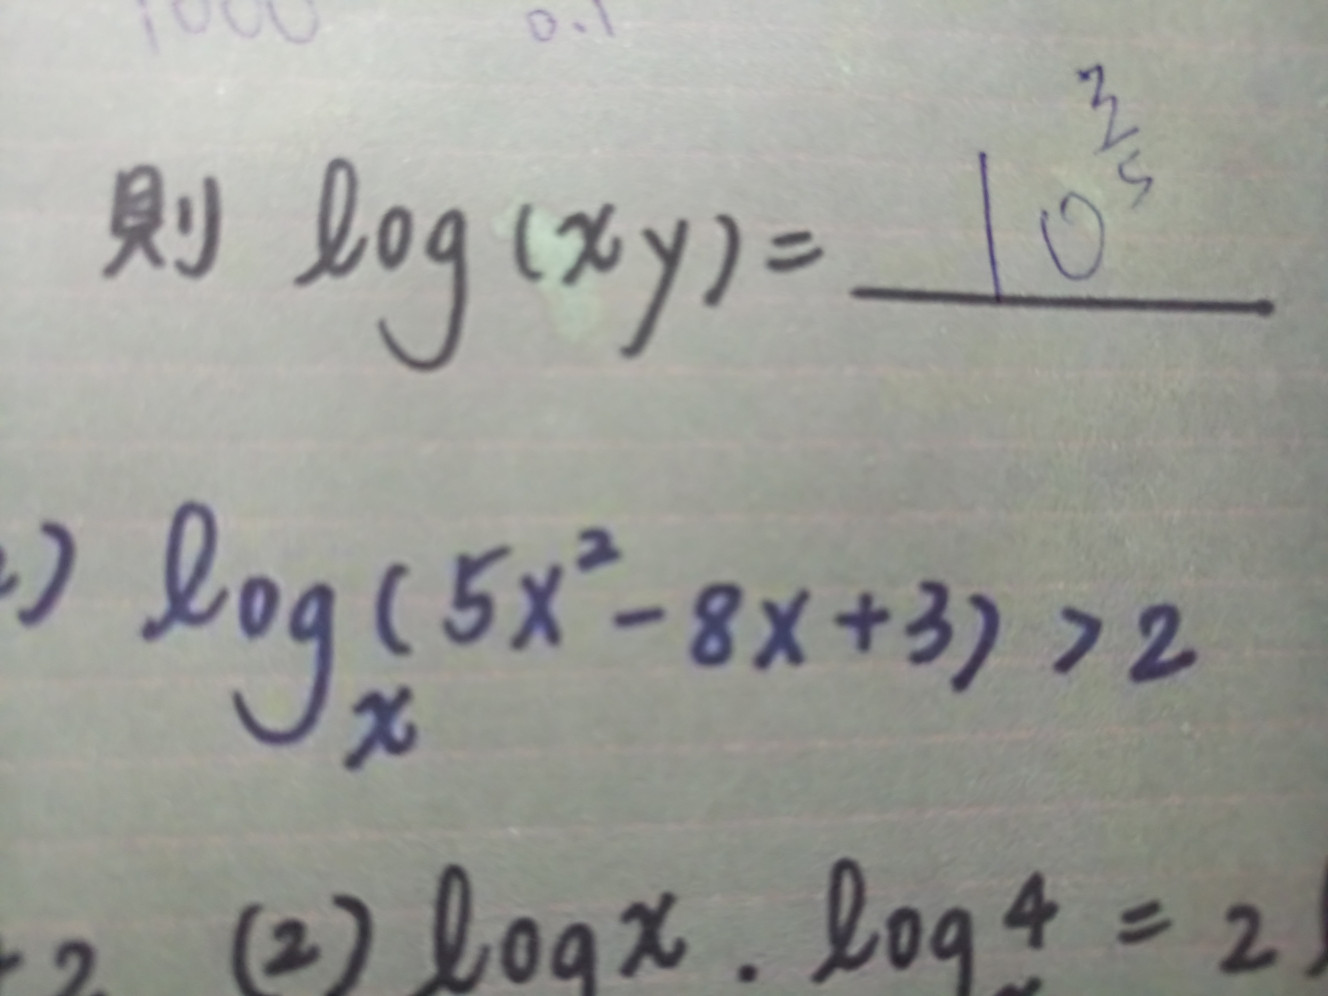 1000 0.1
則 log(xy) = 10^(3/5)
) log_x(5x² - 8x + 3) > 2
2 (2) log x . log_x 4 = 2